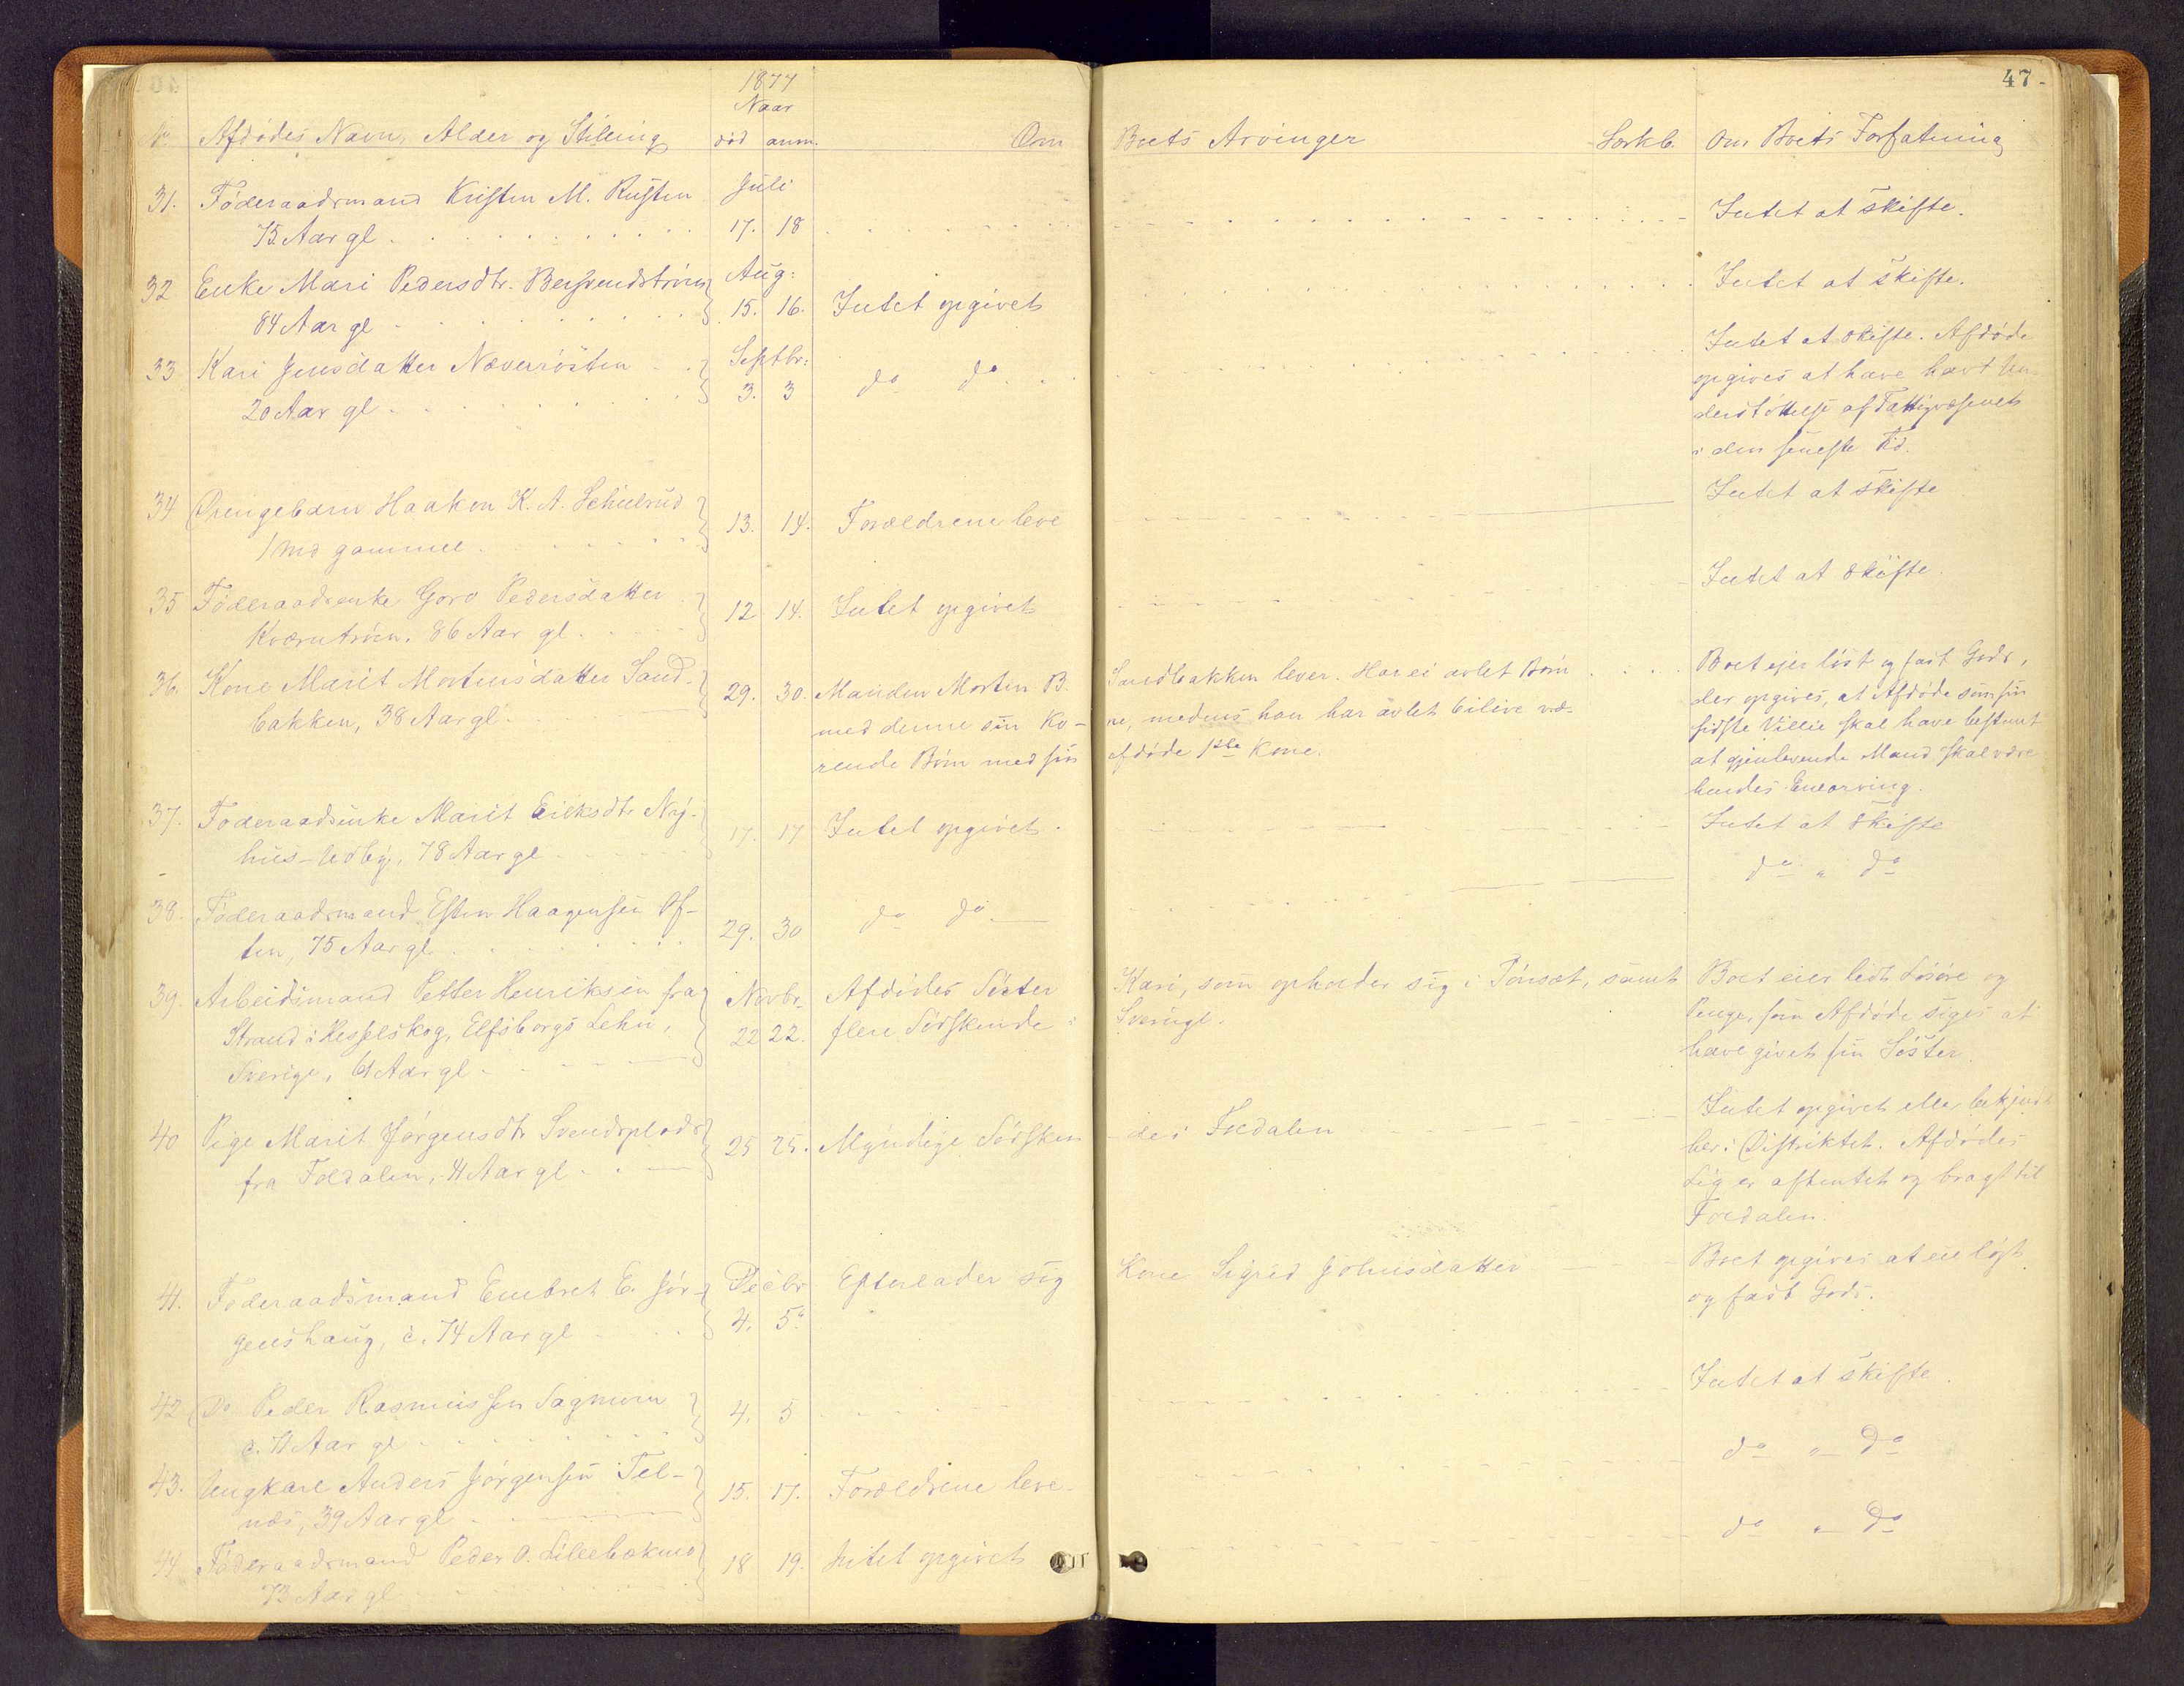 47-
1877
Naar
No. Afdødes Navn, Alder og Stilling død anm. Om Boets Arvinger Særkb. Om Boets Forfatning
31. Föderaadsmand Kristen M. Rusten Juli Intet at skifte.
75 Aar gl. 17. 18
32 Enke Mari Pedersdtr. Aug: Intet at skifte.
84 Aar gl 15. 16. Intet opgivet
33. Kari Jensdatter Næverrösten Septbr: Intet at skifte. Afdøde
20 Aar gl. 3. 3 do do opgives at have havt Un-
derstöttelse af Fattigvæsenet
i den seneste Tid.
34 Drengebarn Haakon K. A. Schulrud Intet at skifte
1 Md gammel. 13. 14. Forældrene leve
35 Föderaadsenke Goro Pedersdatter Intet at skifte.
Kværntröen. 86 Aar gl. 12 14. Intet opgivet
36. Kone Marit Mortensdatter Sand- 29. 30. Manden Morten B. Sandbakken lever. Har ei avlet Bör- Boet ejer löst og fast Gods,
bakken, 38 Aar gl. med denne sin Ko- ne, medens han har avlet 6 ilive væ- der opgives, at Afdöde som sin
rende Börn med sin afdöde 1ste Kone. sidste Villie skal have bestemt
at gjenlevende Mand skal være
hendes Enearving.
37. Föderaadsenke Marit Eriksdtr Ny- 17. 17 Intet opgivet. Intet at skifte
hus-Udby, 78 Aar gl. do " do
38. Föderaadsmand Esten Haagensen Of-
ten, 75 Aar gl. 29. 30 do do
39. Arbeidsmand Petter Henriksen fra Novbr. Afdödes Söster Kari, som opholder sig i Tönset, samt Boet eier lidt Lösöre og
Strand i Hesselskog, Elfsborgs Lehn, 22 22. flere Södskende i Sverige. Penge, som Afdöde siges at
Sverige, 61 Aar gl. have givet sin Söster.
40 Pige Marit Jörgensdtr Svendsplads 25 25. Myndige Södsken- de i Foldalen Intet opgivet eller bekjendt
fra Foldalen, 41 Aar gl. her i Distriktet. Afdödes
Lig er afhentet og bragt til
Foldalen.
41. Föderaadsmand Embret E. Jör- Decbr Efterlader sig Kone Sigrid Johnsdatter Boet opgives at eie löst
genshaug, c. 74 Aar gl 4. 5. og fast Gods.
42. Do Peder Rasmussen Sagmoen 4. 5 Intet at skifte.
c. 71 Aar gl
43. Ungkarl Anders Jörgensen Tel- 15. 17. Forældrene leve. do " do
næs, 39 Aar gl.
44 Föderaadsmand Peder O. Lillebækmo 18 19. Intet opgivet do " do
73 Aar gl.